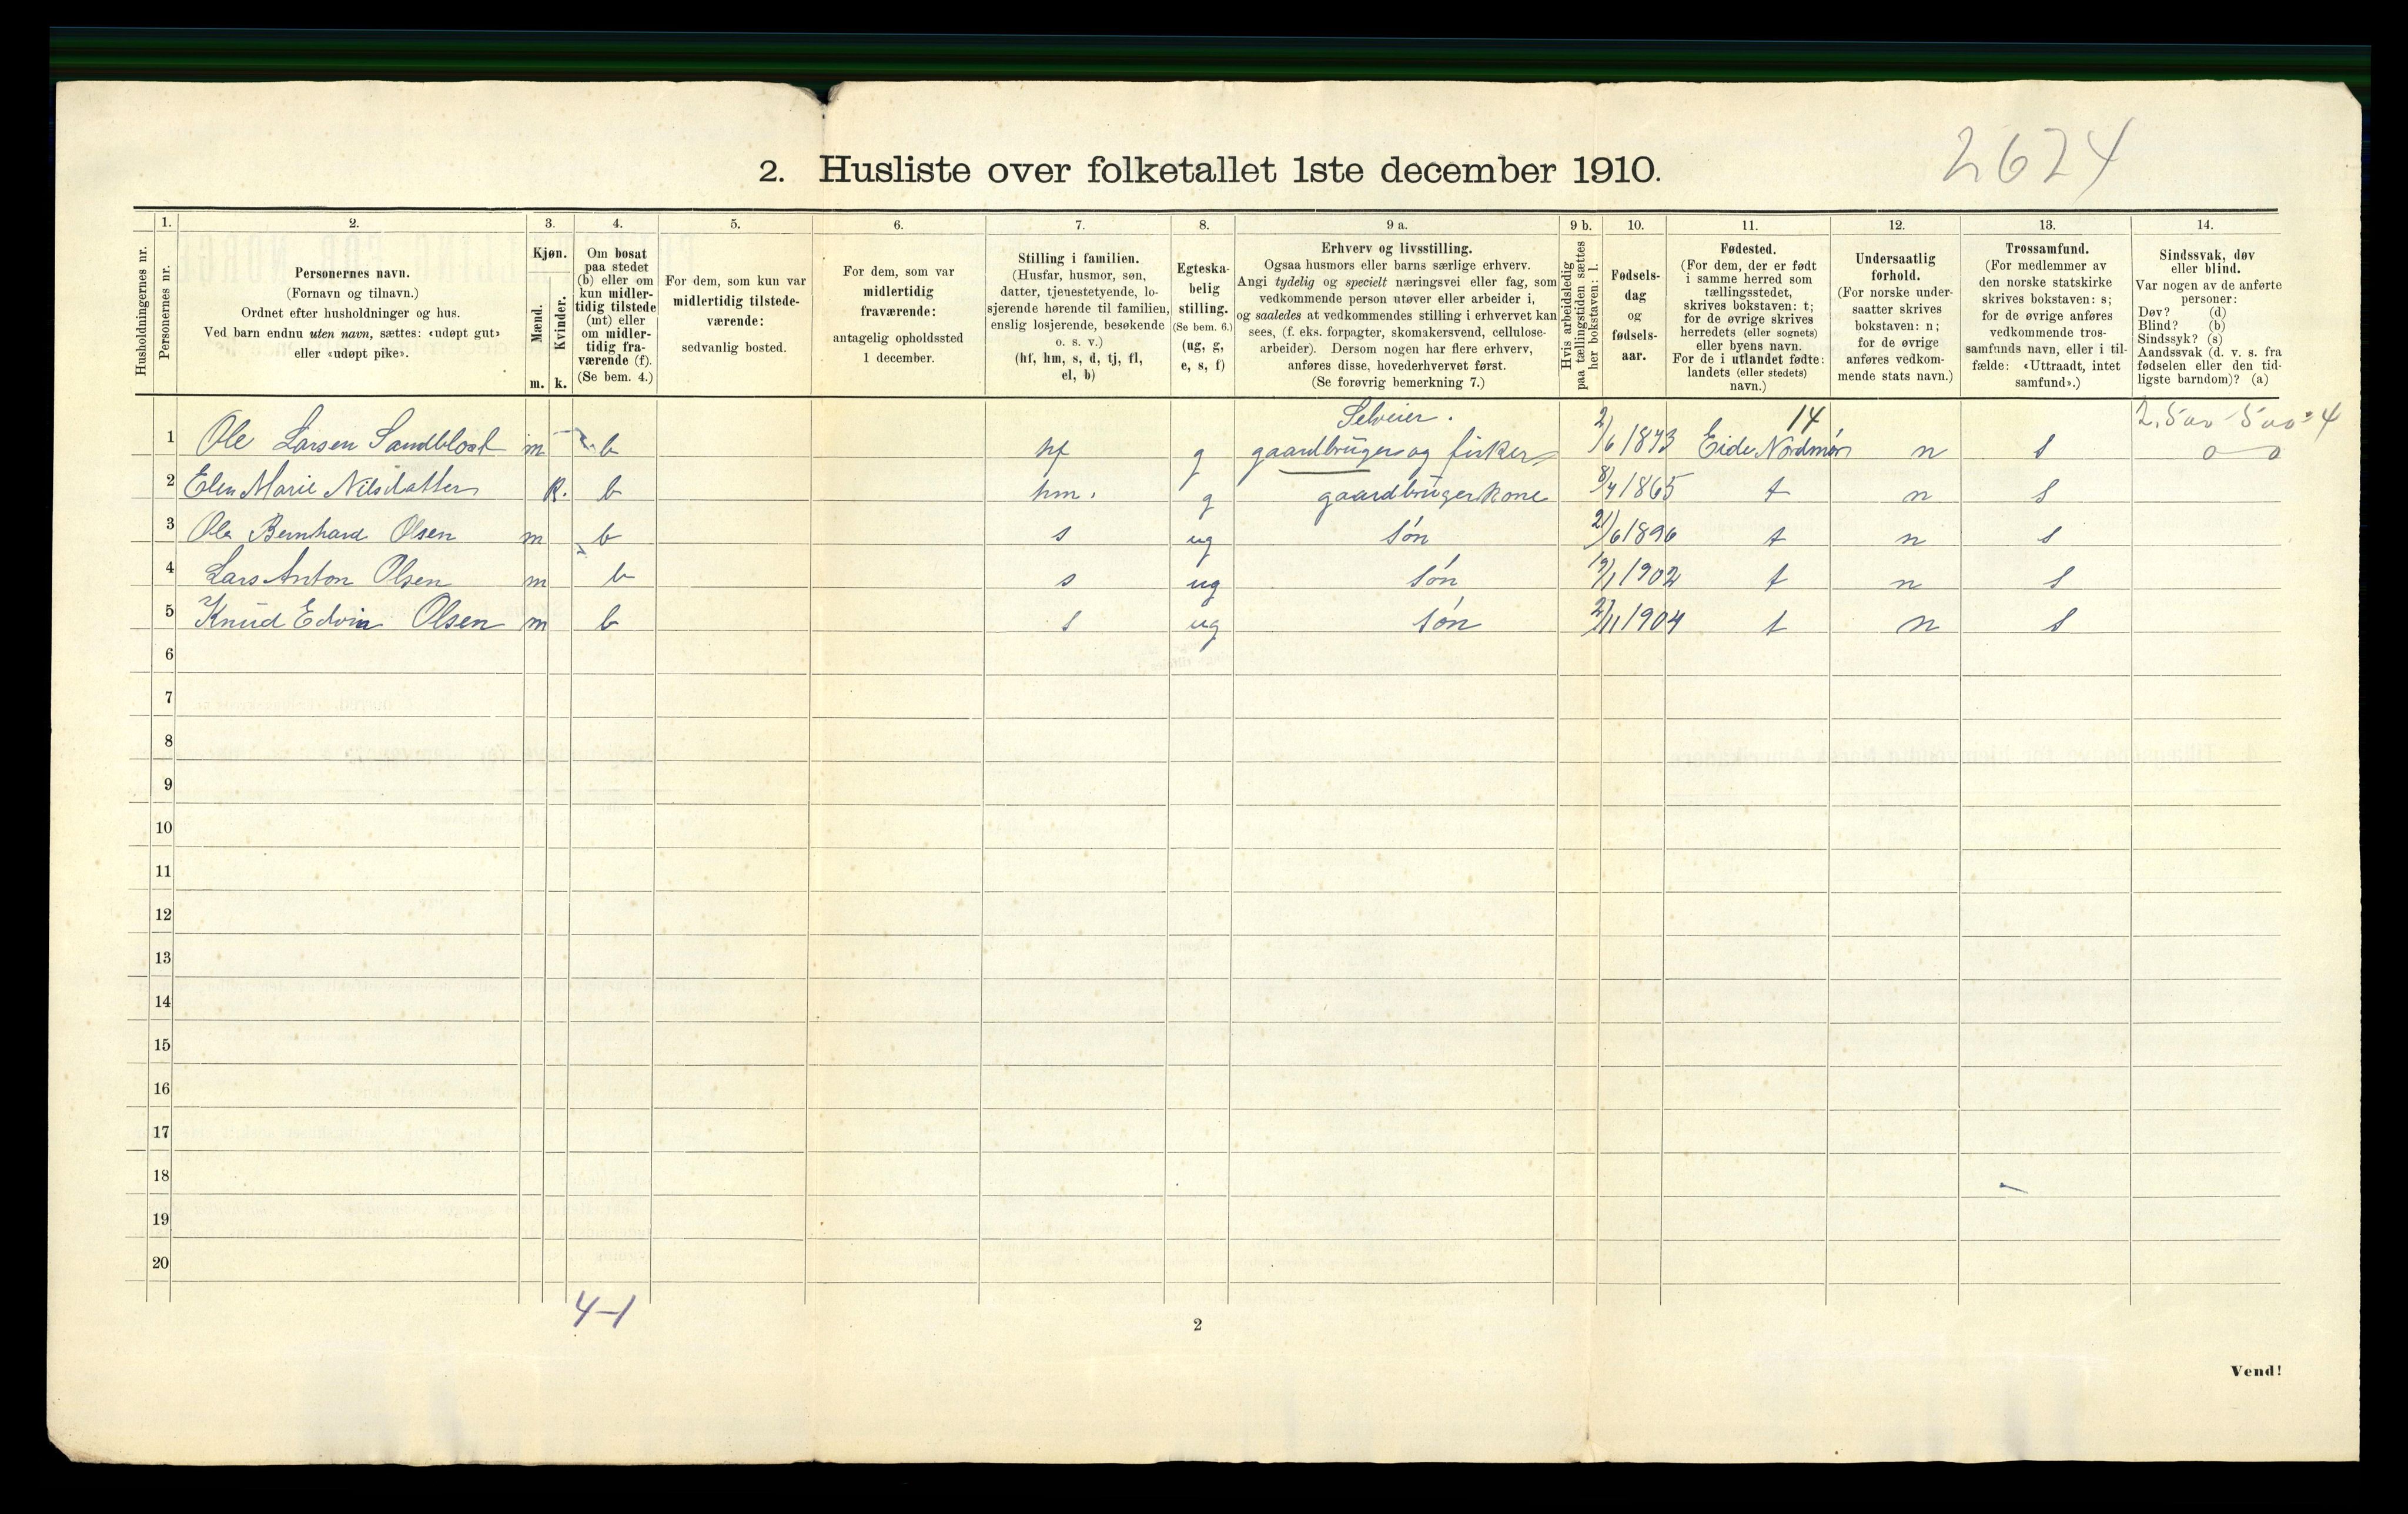 2624
2. Husliste over folketallet 1ste december 1910.
Husholdningernes nr.
1.
Personernes nr.
2.
Personernes navn.
(Fornavn og tilnavn.)
Ordnet efter husholdninger og hus.
Ved barn endnu uten navn, sættes: «udøpt gut»
eller «udøpt pike».
3.
Kjøn.
Mænd.
Kvinder.
m. k.
4.
Om bosat
paa stedet
(b) eller om
kun midler-
tidig tilstede
(mt) eller
om midler-
tidig fra-
værende (f).
(Se bem. 4.)
5.
For dem, som kun var
midlertidig tilstede-
værende:
sedvanlig bosted.
6.
For dem, som var
midlertidig
fraværende:
antagelig opholdssted
1 december.
7.
Stilling i familien.
(Husfar, husmor, søn,
datter, tjenestetyende, lo-
sjerende hørende til familien,
enslig losjerende, besøkende
o. s. v.)
(hf, hm, s, d, tj, fl,
el, b)
8.
Egteska-
belig
stilling.
(Se bem. 6.)
(ug, g,
e, s, f)
9 a.
Erhverv og livsstilling.
Ogsaa husmors eller barns særlige erhverv.
Angi tydelig og specielt næringsvei eller fag, som
vedkommende person utøver eller arbeider i,
og saaledes at vedkommendes stilling i erhvervet kan
sees, (f. eks. forpagter, skomakersvend, cellulose-
arbeider). Dersom nogen har flere erhverv,
anføres disse, hovederhvervet først.
(Se forøvrig bemerkning 7.)
9 b.
Hvis arbeidsledig
paa tællingstiden sættes
her bokstaven: l.
10.
Fødsels-
dag
og
fødsels-
aar.
11.
Fødested.
(For dem, der er født
i samme herred som
tællingsstedet,
skrives bokstaven: t;
for de øvrige skrives
herredets (eller sognets)
eller byens navn.
For de i utlandet fødte:
landets (eller stedets)
navn.)
12.
Undersaatlig
forhold.
(For norske under-
saatter skrives
bokstaven: n;
for de øvrige
anføres vedkom-
mende stats navn.)
13.
Trossamfund.
(For medlemmer av
den norske statskirke
skrives bokstaven: s;
for de øvrige anføres
vedkommende tros-
samfunds navn, eller i til-
fælde: «Uttraadt, intet
samfund».)
14.
Sindssvak, døv
eller blind.
Var nogen av de anførte
personer:
Døv? (d)
Blind? (b)
Sindssyk? (s)
Aandssvak (d. v. s. fra
fødselen eller den tid-
ligste barndom)? (a)
Selveier. 14 2.500-500=4
1 Ole Larsen Sandblost m b hf g gaardbruger og fisker 2/6 1873 Eide Nordmør n s 0 0
2 Elen Marie Nilsdatter k. b hm. g gaardbrugerkone 8/4 1865 t n s
3 Ole Bernhard Olsen m b s ug søn 21/6 1896 t n s
4 Lars Anton Olsen m b s ug søn 19/1 1902 t n s
5 Knud Edvin Olsen m b s ug søn 27/11 1904 t n s
6
7
8
9
10
11
12
13
14
15
16
17
18
19
20
4-1
2
Vend!